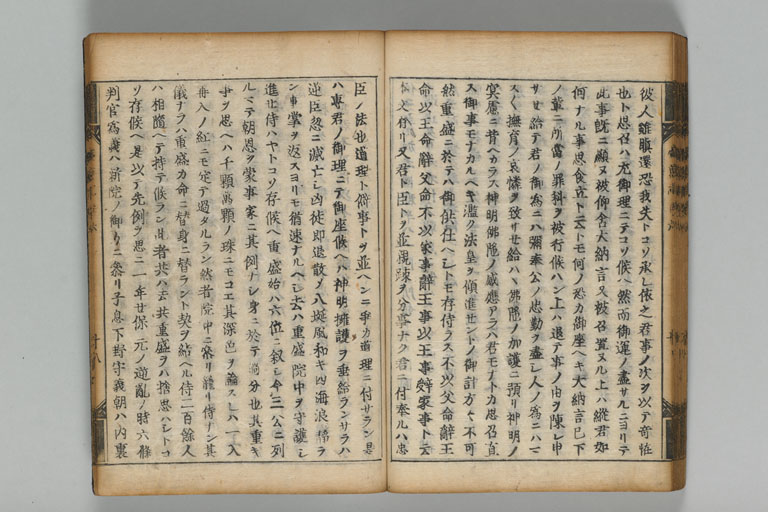 彼人雖瞋還恐我失トコソ承レ依之君事ノ次ヲ以テ奇恠
也ト思召ハ尤御理ニテコソ候ヘ然而御運ノ盡サルニヨリテ
此事既ニ顕ヌ被仰含大納言又被召置ヌル上ハ縦君如
何ナル事思食立ト云トモ何ノ恐カ御座ヘキ大納言已下
ノ輩ニ所當ノ罪科ヲ被行候ハン上ハ退テ事ノ由ヲ陳シ申
サセ給テ君ノ御為ニハ彌奉公ノ忠勤ヲ盡シ人ノ為ニハマ
スヽ撫育ノ哀憐ヲ致サセ給ハヽ佛陀ノ加護ニ預リ神明ノ
冥慮ニ背ヘカラス神明佛陀ノ感應アラハ君モナトカ思召直
ス御事モナカルヘキ濫ク法皇ヲ傾進セントノ御計方々不可
然重盛ニ於テハ御供仕ヘシトモ存侍ラス不以父命辭王
命以王命辭父命不以家事辭王事以王事辭家事ト云
本文有リ又君ト臣トヲ並親踈ヲ分事ナク君ニ付奉ルハ忠
臣ノ法也道理ト僻事トヲ並ヘンニ爭カ道理ニ付サラン是
ハ専君ノ御理ニテ御座候ヘハ神明擁護ヲ垂給ランサラハ
逆臣忽ニ滅亡シ凶徒即退散メ八埏風和キ四海浪静ラ
ン事掌ヲ返スヨリモ猶速ナルヘシ去ハ重盛院中ヲ守護シ
進セ侍ハヤトコソ存候ヘ重盛始ハ六位ニ叙シ今三公ニ列
ルマテ朝恩ヲ蒙事家ニ其例ナシ身ニ於テ過分也其重キ
事ヲ思ヘハ千顆萬顆ノ珠ニモコエ其深色ヲ論スレハ一入
再入ノ紅ニモ定テ過タルラン然者院中ニ参リ籠リ侍ナン其
儀ナラハ重盛カ命ニ替身ニ替ラント契ヲ結ヘル侍二百餘人
ハ相随ヘテ持テ候ラン此者共ハ去共重盛ヲハ捨思ハシトコ
ソ存候ヘ是以テ先例ヲ思ニ一年セ保元ノ逆亂ノ時六條
判官為義ハ新院ノ御方ニ参リ子息下野守義朝ハ内裏